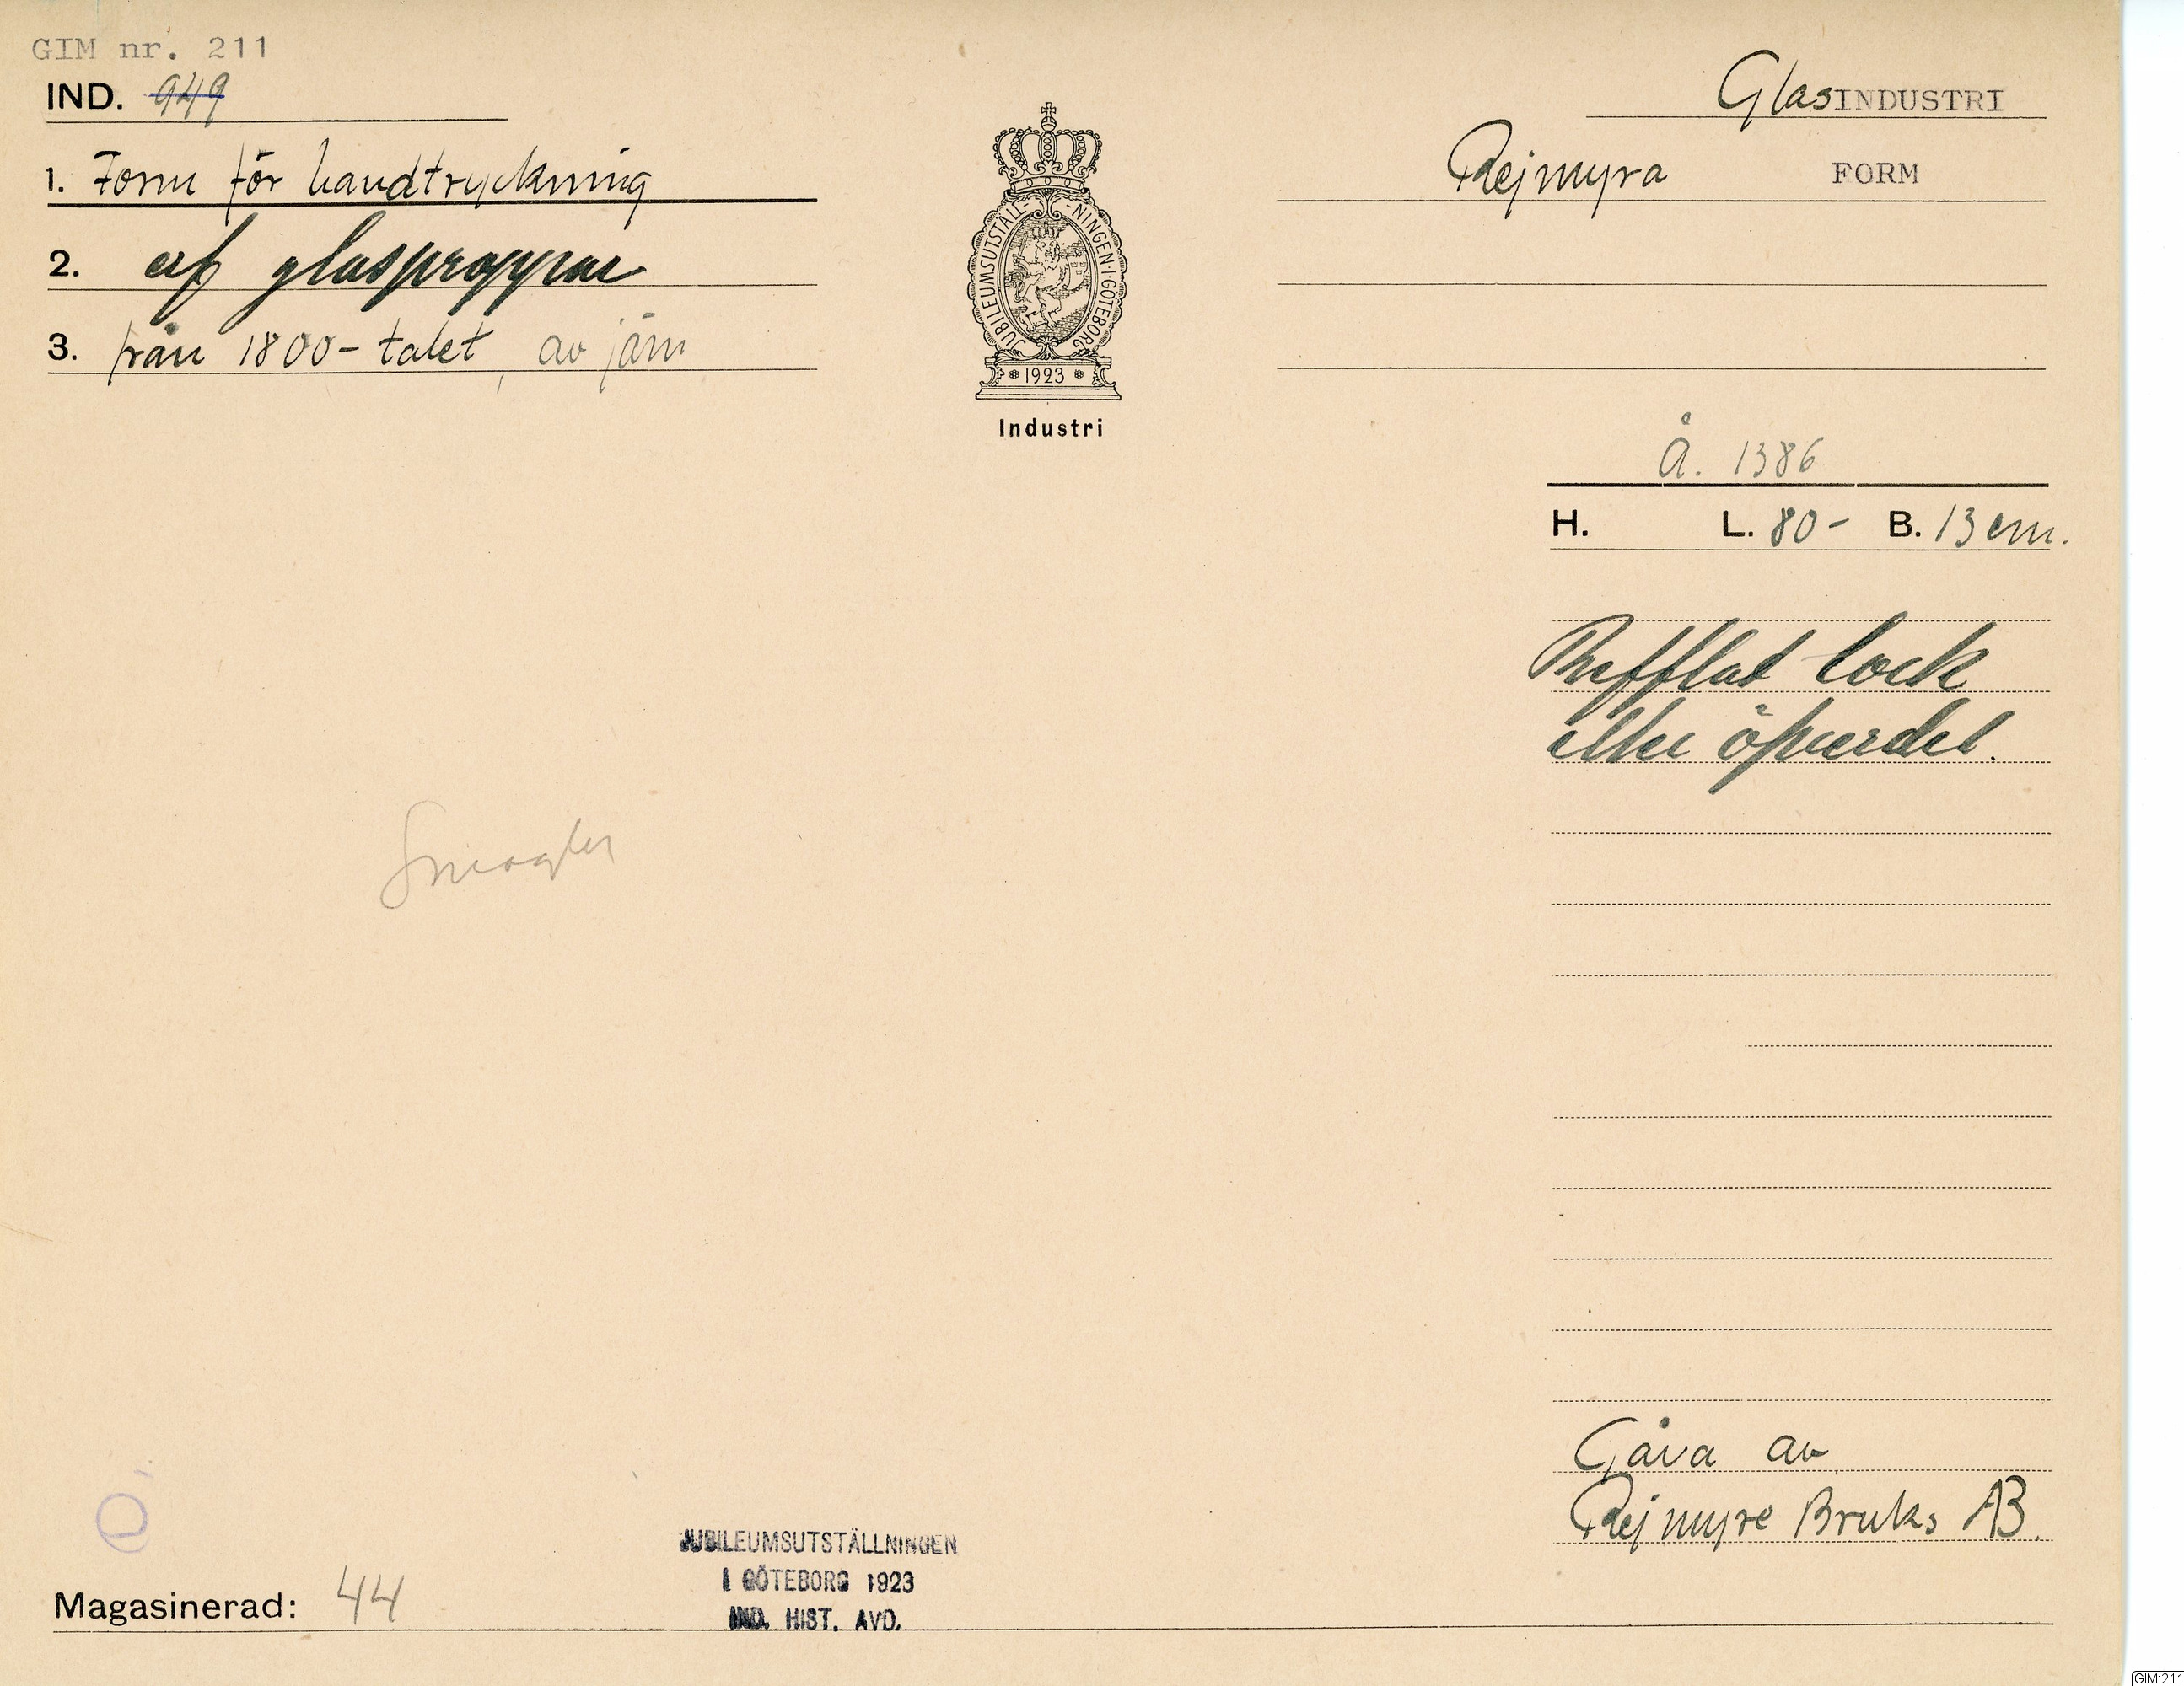 GIM nr. 211
IND. 949
GlasINDUSTRI
1. Form för handtryckning
Rejmyra FORM
2. af glasproppar
3. från 1800-talet, av järn
JUBILEUMSUTSTÄLL-NINGEN·I·GÖTEBORG
1923
Industri
Å. 1386
H. L. 80- B. 13 cm.
Refflat lock
eller öfverdel.
Gåva av
Rejmyre Bruks AB.
JUBILEUMSUTSTÄLLNINGEN
I GÖTEBORG 1923
IND. HIST. AVD.
Magasinerad: 44
GIM:211